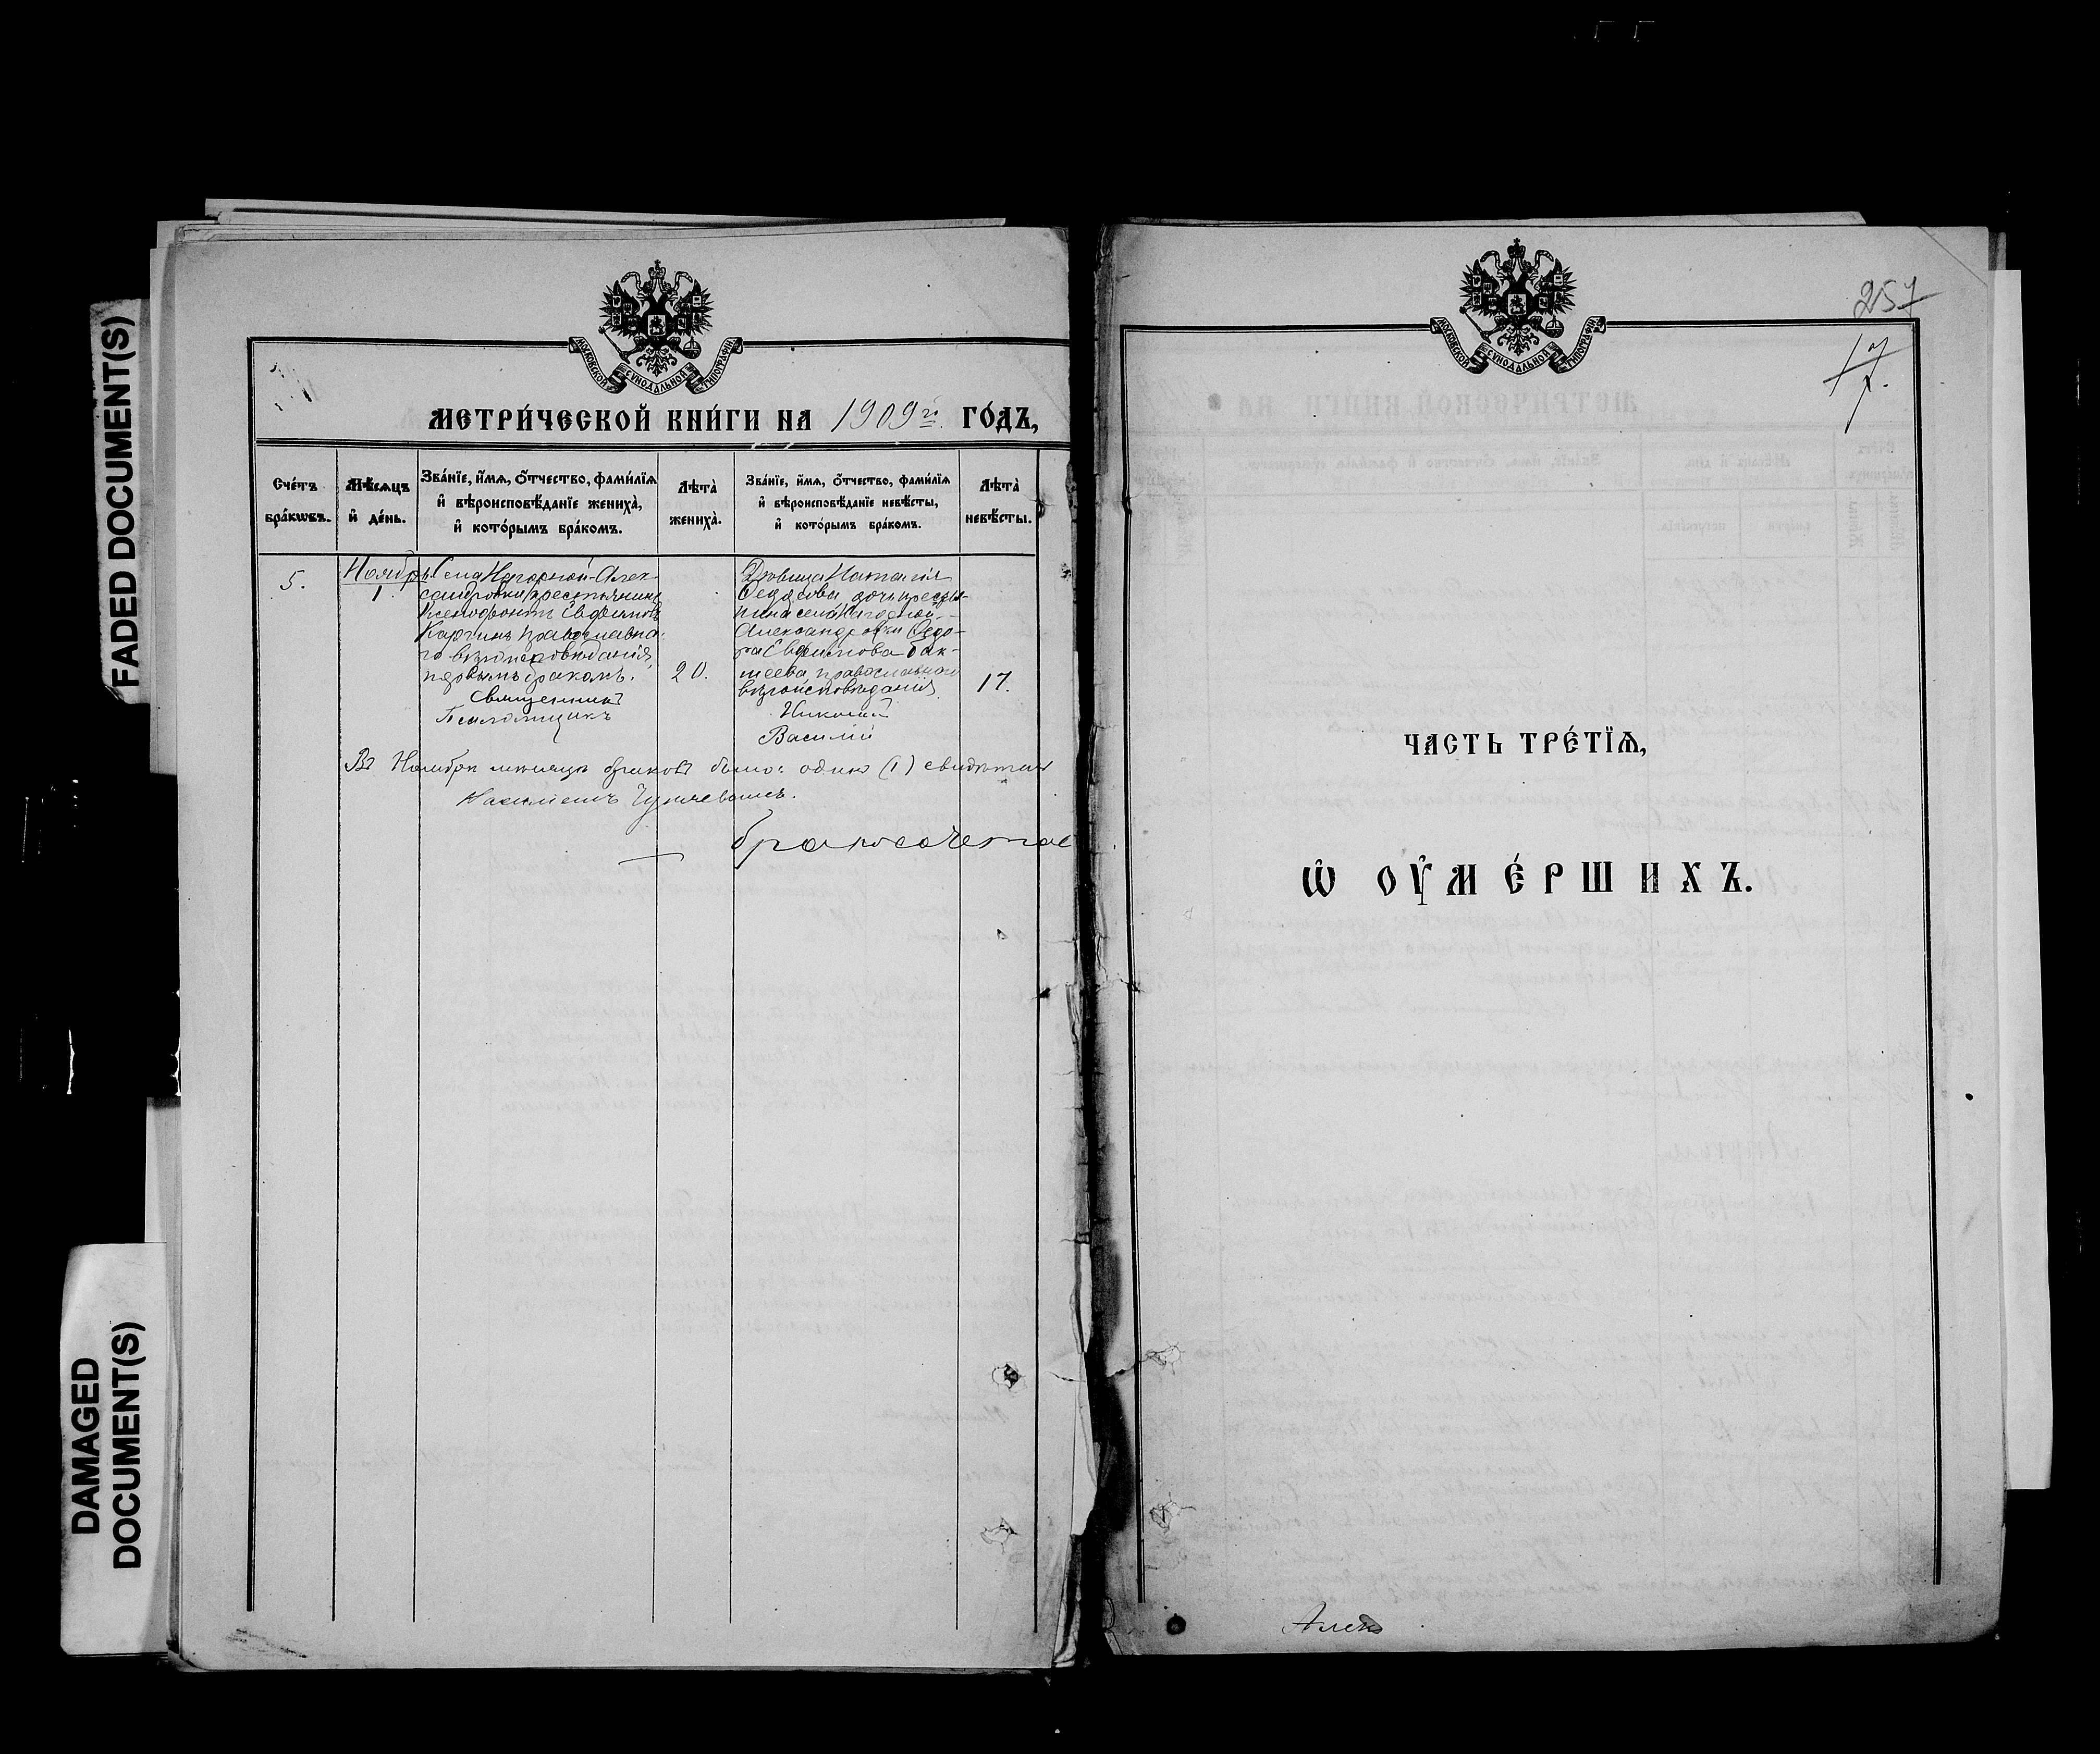 FADED DOCUMENT(S)
DAMAGED
DOCUMENT(S)
МОСКОВСКОЙ СѴНОДАЛЬНОЙ ТИПОГРАФІИ
МЕТРИ́ЧЕСКОЙ КНИ́ГИ НА 1909й ГО́ДЪ,
Сче́тъ бра́кѡвъ.
Мѣ́сѧцъ и҆ де́нь.
Зва́нїе, и҆́мѧ, ѻ҆́тчество, фами́лїѧ
и҆ вѣроисповѣ́данїе жениха̀,
и҆ кото́рымъ бра́комъ.
Лѣта̀ жениха̀.
Зва́нїе, и҆́мѧ, ѻ҆́тчество, фами́лїѧ
и҆ вѣроисповѣ́данїе невѣ́сты,
и҆ кото́рымъ бра́комъ.
Лѣта̀ невѣ́сты.
5.
Ноябрь
1
Села Нагорной-Алек-
сандровки крестьянинъ
Ксенофонтъ Евфимовъ
Каргинъ православна-
го вѣроисповѣданія,
первымъ бракомъ.
20.
Дѣвица Наталія
Ѳедорова дочь кресть-
янина села Нагорной-
Александровки Ѳедо-
ра Евфимова Бак-
теева православнаго
вѣроисповѣданія
17.
Священникъ Николай
Псаломщикъ Василій
Въ Ноябрѣ мѣсяцѣ браковъ было: одинъ (1)
бракосочетав
МОСКОВСКОЙ СѴНОДАЛЬНОЙ ТИПОГРАФІИ
257
17
ЧАСТЬ ТРЕ́ТЇѦ,
Ѡ҆ ОУ҆МЕ́РШИХЪ.
Алек